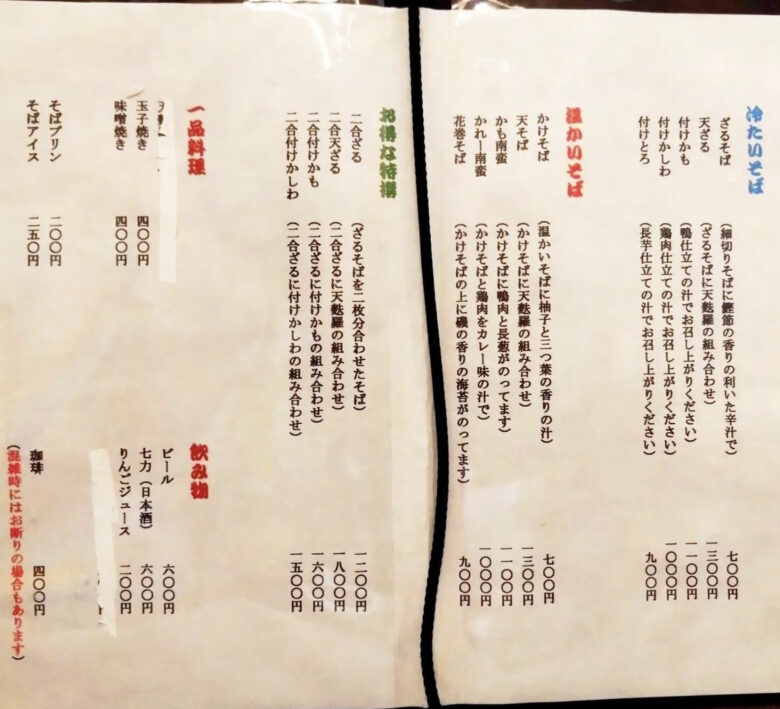 冷たいそば
ざるそば （細切りそばに鰹節の香りの利いた辛汁で） 七〇〇円
天ざる （ざるそばに天麩羅の組み合わせ） 一三〇〇円
付けかも （鴨仕立ての汁でお召し上がりください） 一一〇〇円
付けかしわ （鶏肉仕立ての汁でお召し上がりください） 一〇〇〇円
付けとろ （長芋仕立ての汁でお召し上がりください） 九〇〇円
温かいそば
かけそば （温かいそばに柚子と三つ葉の香りの汁） 七〇〇円
天そば （かけそばに天麩羅の組み合わせ） 一三〇〇円
かも南蛮 （かけそばに鴨肉と長葱がのってます） 一一〇〇円
かれー南蛮 （かけそばと鶏肉をカレー味の汁で） 一〇〇〇円
花巻そば （かけそばの上に磯の香りの海苔がのってます） 九〇〇円
お得な特撰
二合ざる （ざるそばを二枚分合わせたそば） 一二〇〇円
二合天ざる （二合ざるに天麩羅の組み合わせ） 一八〇〇円
二合付けかも （二合ざるに付けかもの組み合わせ） 一六〇〇円
二合付けかしわ （二合ざるに付けかしわの組み合わせ） 一五〇〇円
一品料理
玉子焼き 四〇〇円
味噌焼き 四〇〇円
そばプリン 二〇〇円
そばアイス 二五〇円
飲み物
ビール 六〇〇円
七力（日本酒） 六〇〇円
りんごジュース 二〇〇円
珈琲 四〇〇円
（混雑時にはお断りの場合もあります）